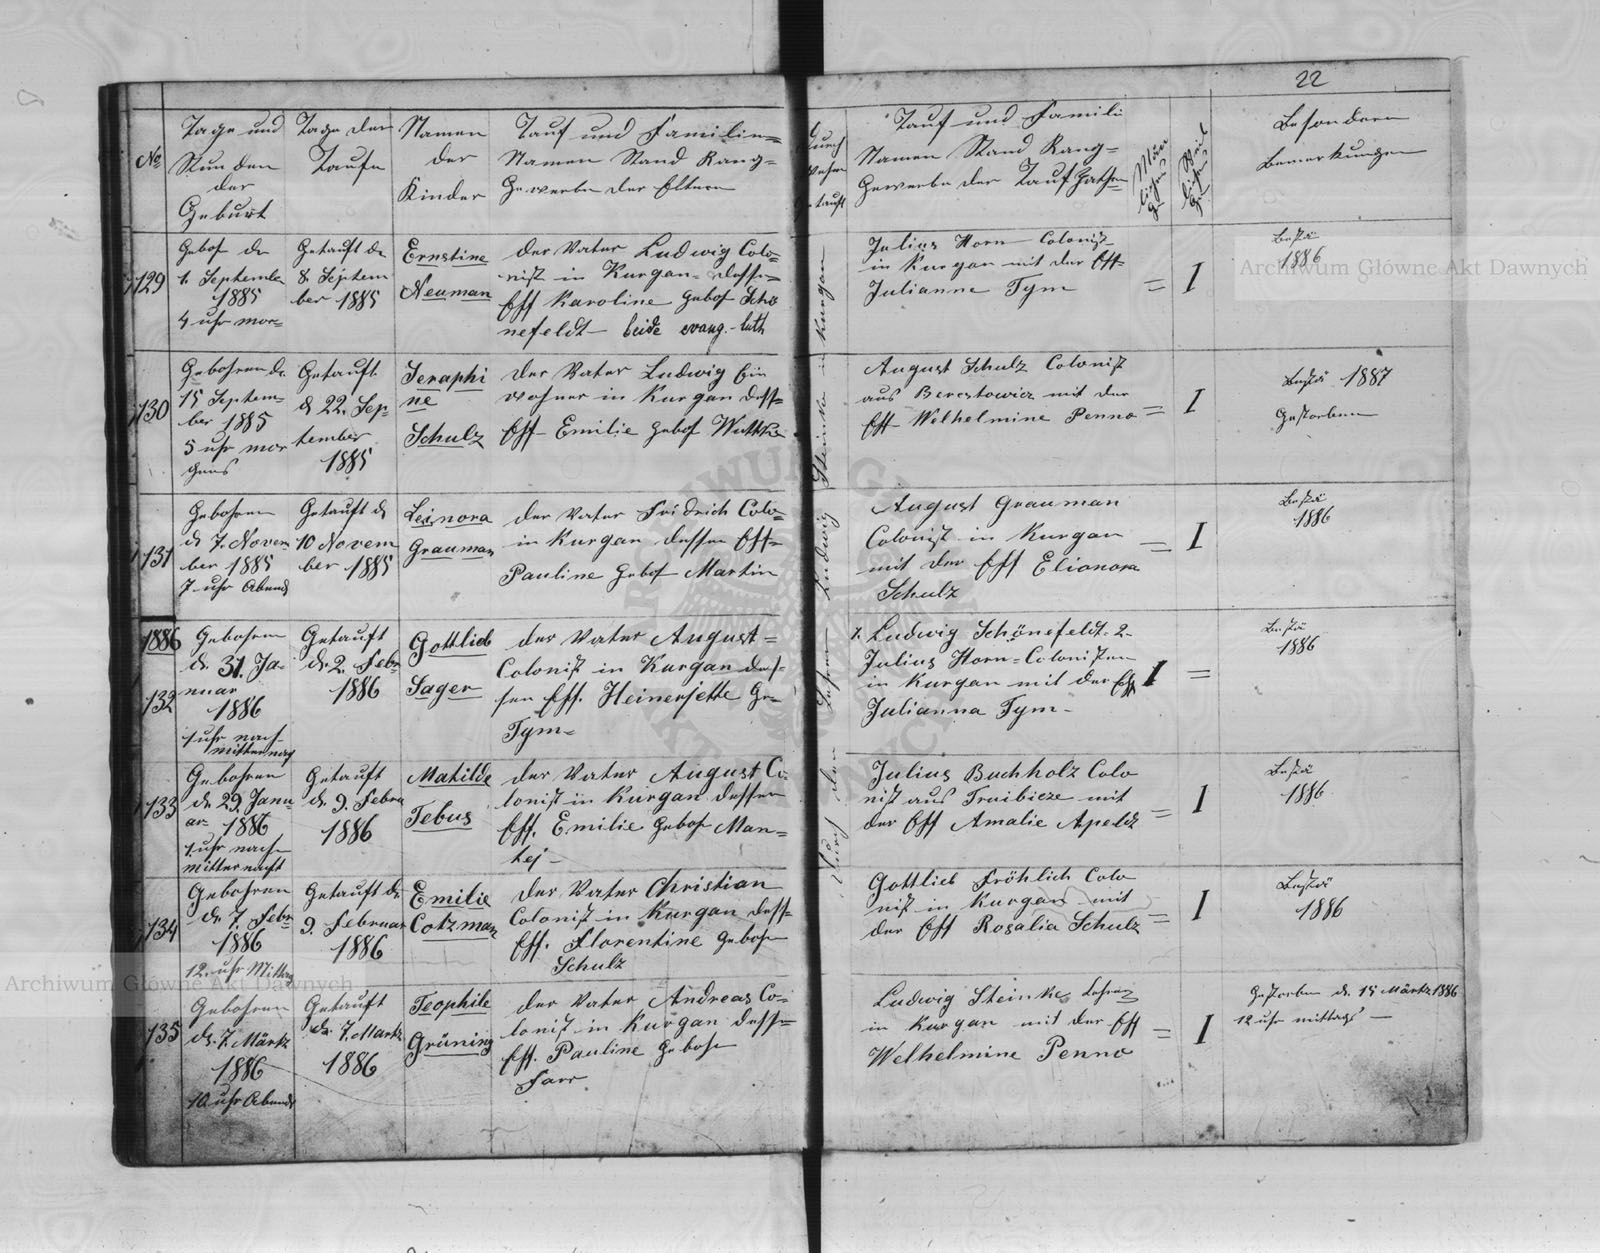 22
No
Tage und
Stunden
der
Geburt
Tage der
Taufe
Namen
der
Kinder
Tauf und Familien=
Namen Stand Rang=
Gewerbe der Eltern
Durch
wehm
getauft
Tauf und Famili
Namen Stand Rang=
Gewerbe der Tauf Pathen
Besondere
Bemerkungen
129
Gebor de
1. September
1885
4 uhr mor=
Getauft de
8. Septem
ber 1885
Ernstine
Neuman
der Vater Ludwig Colo=
nist in Kurgan= dessen
Eff Karoline gebor Schö
nefeldt- beide evang.-luth
Julius Horn Colonist
in Kurgan mit der Eff=
Julianne Tym
= I
Bestä
1886
130
Gebohren de.
15 Septem=
ber 1885
5 uhr mor
gens
Getauft
d 22. Sep=
tember
1885
Seraphi
ne
Schulz
der Vater Ludwig Ein
wohner in Kurgan dess=
Eff Emilie gebor Wuttke
August Schulz Colonist
aus Berestowiez mit der
Eff Welhelmine Penno
= I
Bestä 1887
Gestorben
131
Gebohren
d 7. Novem
ber 1885
7 uhr Abends
Getauft d
10 Novem
ber 1885
Leinora
Grauman
der Vater Fridrich Colo=
in Kurgan dessen Eff=
Pauline gebor Martin
August Grauman
Colonist in Kurgan
mit der Eff Elionora
Schulz
= I
Bestä
1886
1886
132
Gebohren
de. 31. Ja=
nuar
1886
1 uhr nach
mitternag
Getauft
de. 2. Febr
1886
Gottlieb
Sager
der Vater August=
Colonist in Kurgan des=
sen Eff. Heinerjette ge=
Tym=
1. Ludwig Schönefeldt. 2.
Julius Horn= Colonisten
in Kurgan mit der Eff
Julianna Tym-
I =
Bestä
1886
133
Gebohren
de. 29. Janu
ar 1886
1 uhr nach
mitternacht
Getauft
de. 9. Febru
1886
Matilde
Tebus
der Vater August Co
lonist in Kurgan dessen
Eff. Emilie gebor Man=
tej-
Julius Buchholz Colo
nist aus Truibieze mit
der Eff Amalie Apeldt
= I
Bestä
1886
134
Gebohren
de. 7. Febr
1886
12. uhr Mittag
Getauft de
9. Februar
1886
Emilie
Cotzman
der Vater Christian
Colonist in Kurgan dess=
Eff. Florentine geboh
Schulz
Gottlieb Fröhlich Colo
nist in Kurgan mit
der Eff Rosalia Schulz
= I
Bestä
1886
135
Gebohren
de. 7. Märtz
1886
10 uhr Abends
Getauft
de. 7. Martz
1886
Teophile
Grüning
der Vater Andreas Co=
lonist in Kurgan dess=
Eff. Pauline geboh
Farr
Ludwig Steinke Lehrer
in Kurgan mit der Eff
Welhelmine Penno
= I
Gestorben d. 15 Märtz 1886
12 uhr mittags
Durch den Lehrer Ludwig Steinke in Kurgan
Archiwum Główne Akt Dawnych
Archiwum Główne Akt Dawnych